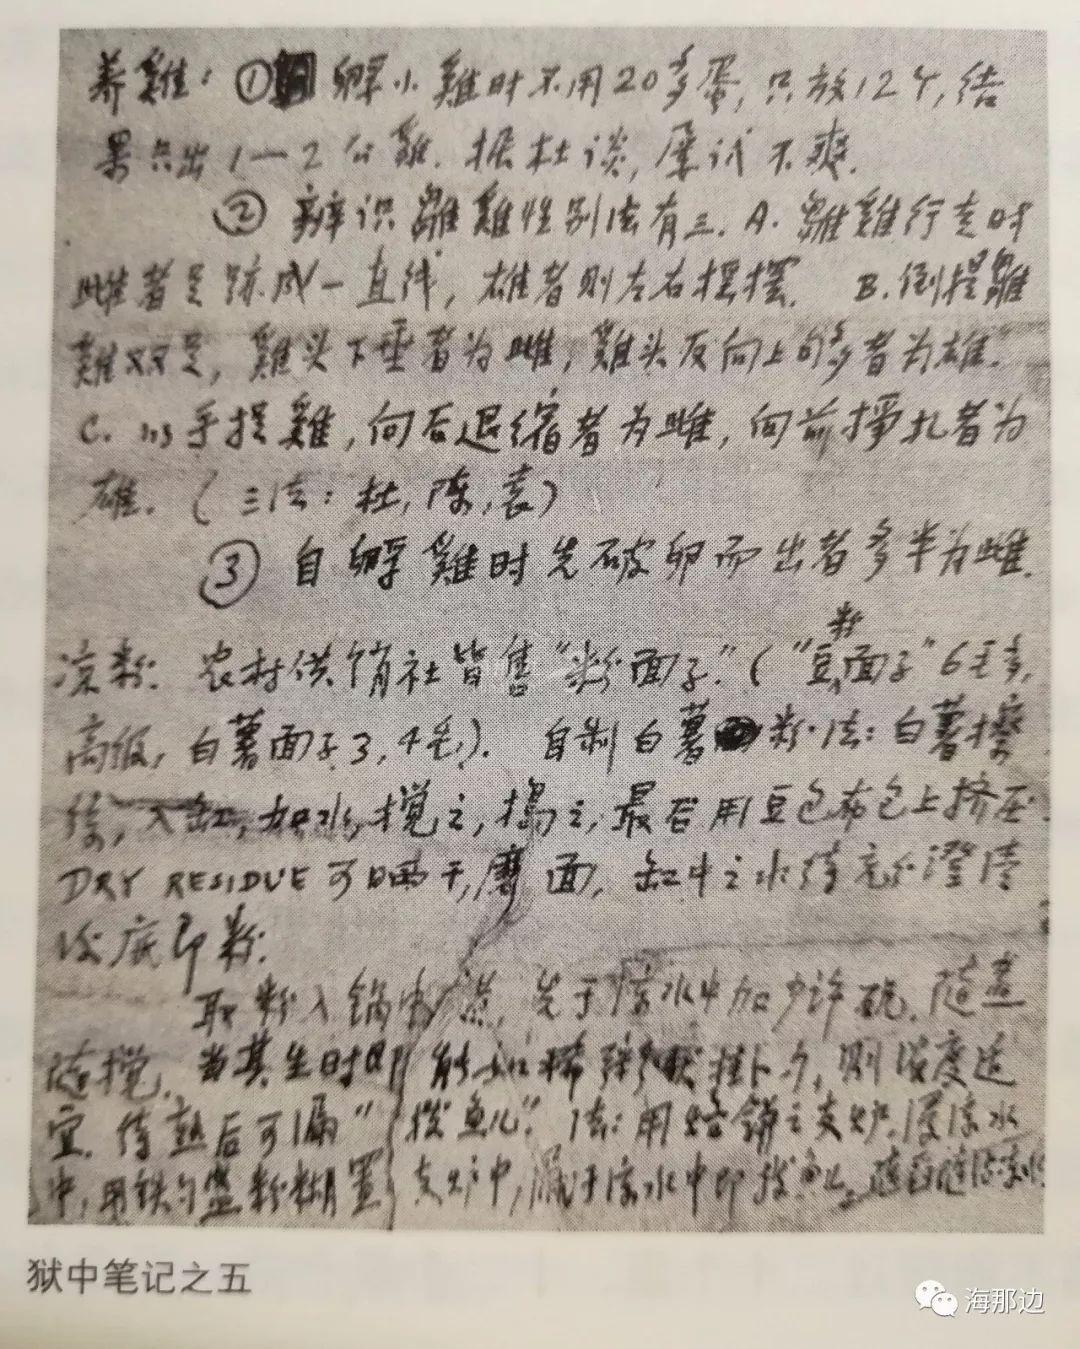 养雞：① 孵小雞时不用20多蛋，只放12个，结
果只出1—2公雞．据杜谈，屡试不爽．
② 辨识雛雞性别法有三．A. 雛雞行走时
雌者足跡成一直线，雄者则左右摇摆． B. 倒提雛
雞双足，雞头下垂者为雌，雞头反向上的多者为雄．
C. 手提雞，向后退缩者为雌，向前挣扎者为
雄．（三法：杜，陈，袁）
③ 自孵雞时先破卵而出者多半为雌．
凉粉．农村供销社皆售“粉面子”．（“豆粉面子”6毛多，
高级，白薯面子3，4毛）． 自制白薯粉法：白薯擦
，入缸，加水，搅之，捣之，最后用豆包布包上挤压．
DRY RESIDUE 可晒干，磨面，缸中之水待充分澄清
后底即粉．
取粉入锅中煮，先于凉水中加少许矾．随煮
随搅．当其生时即能挂上勺，则浓度适
宜．待熟后可漏“拨鱼儿”．法：用烙饼之支炉，凉水
中，用铁勺盛粉糊置支炉中，漏于凉水中即拨鱼儿．
狱中笔记之五
海那边